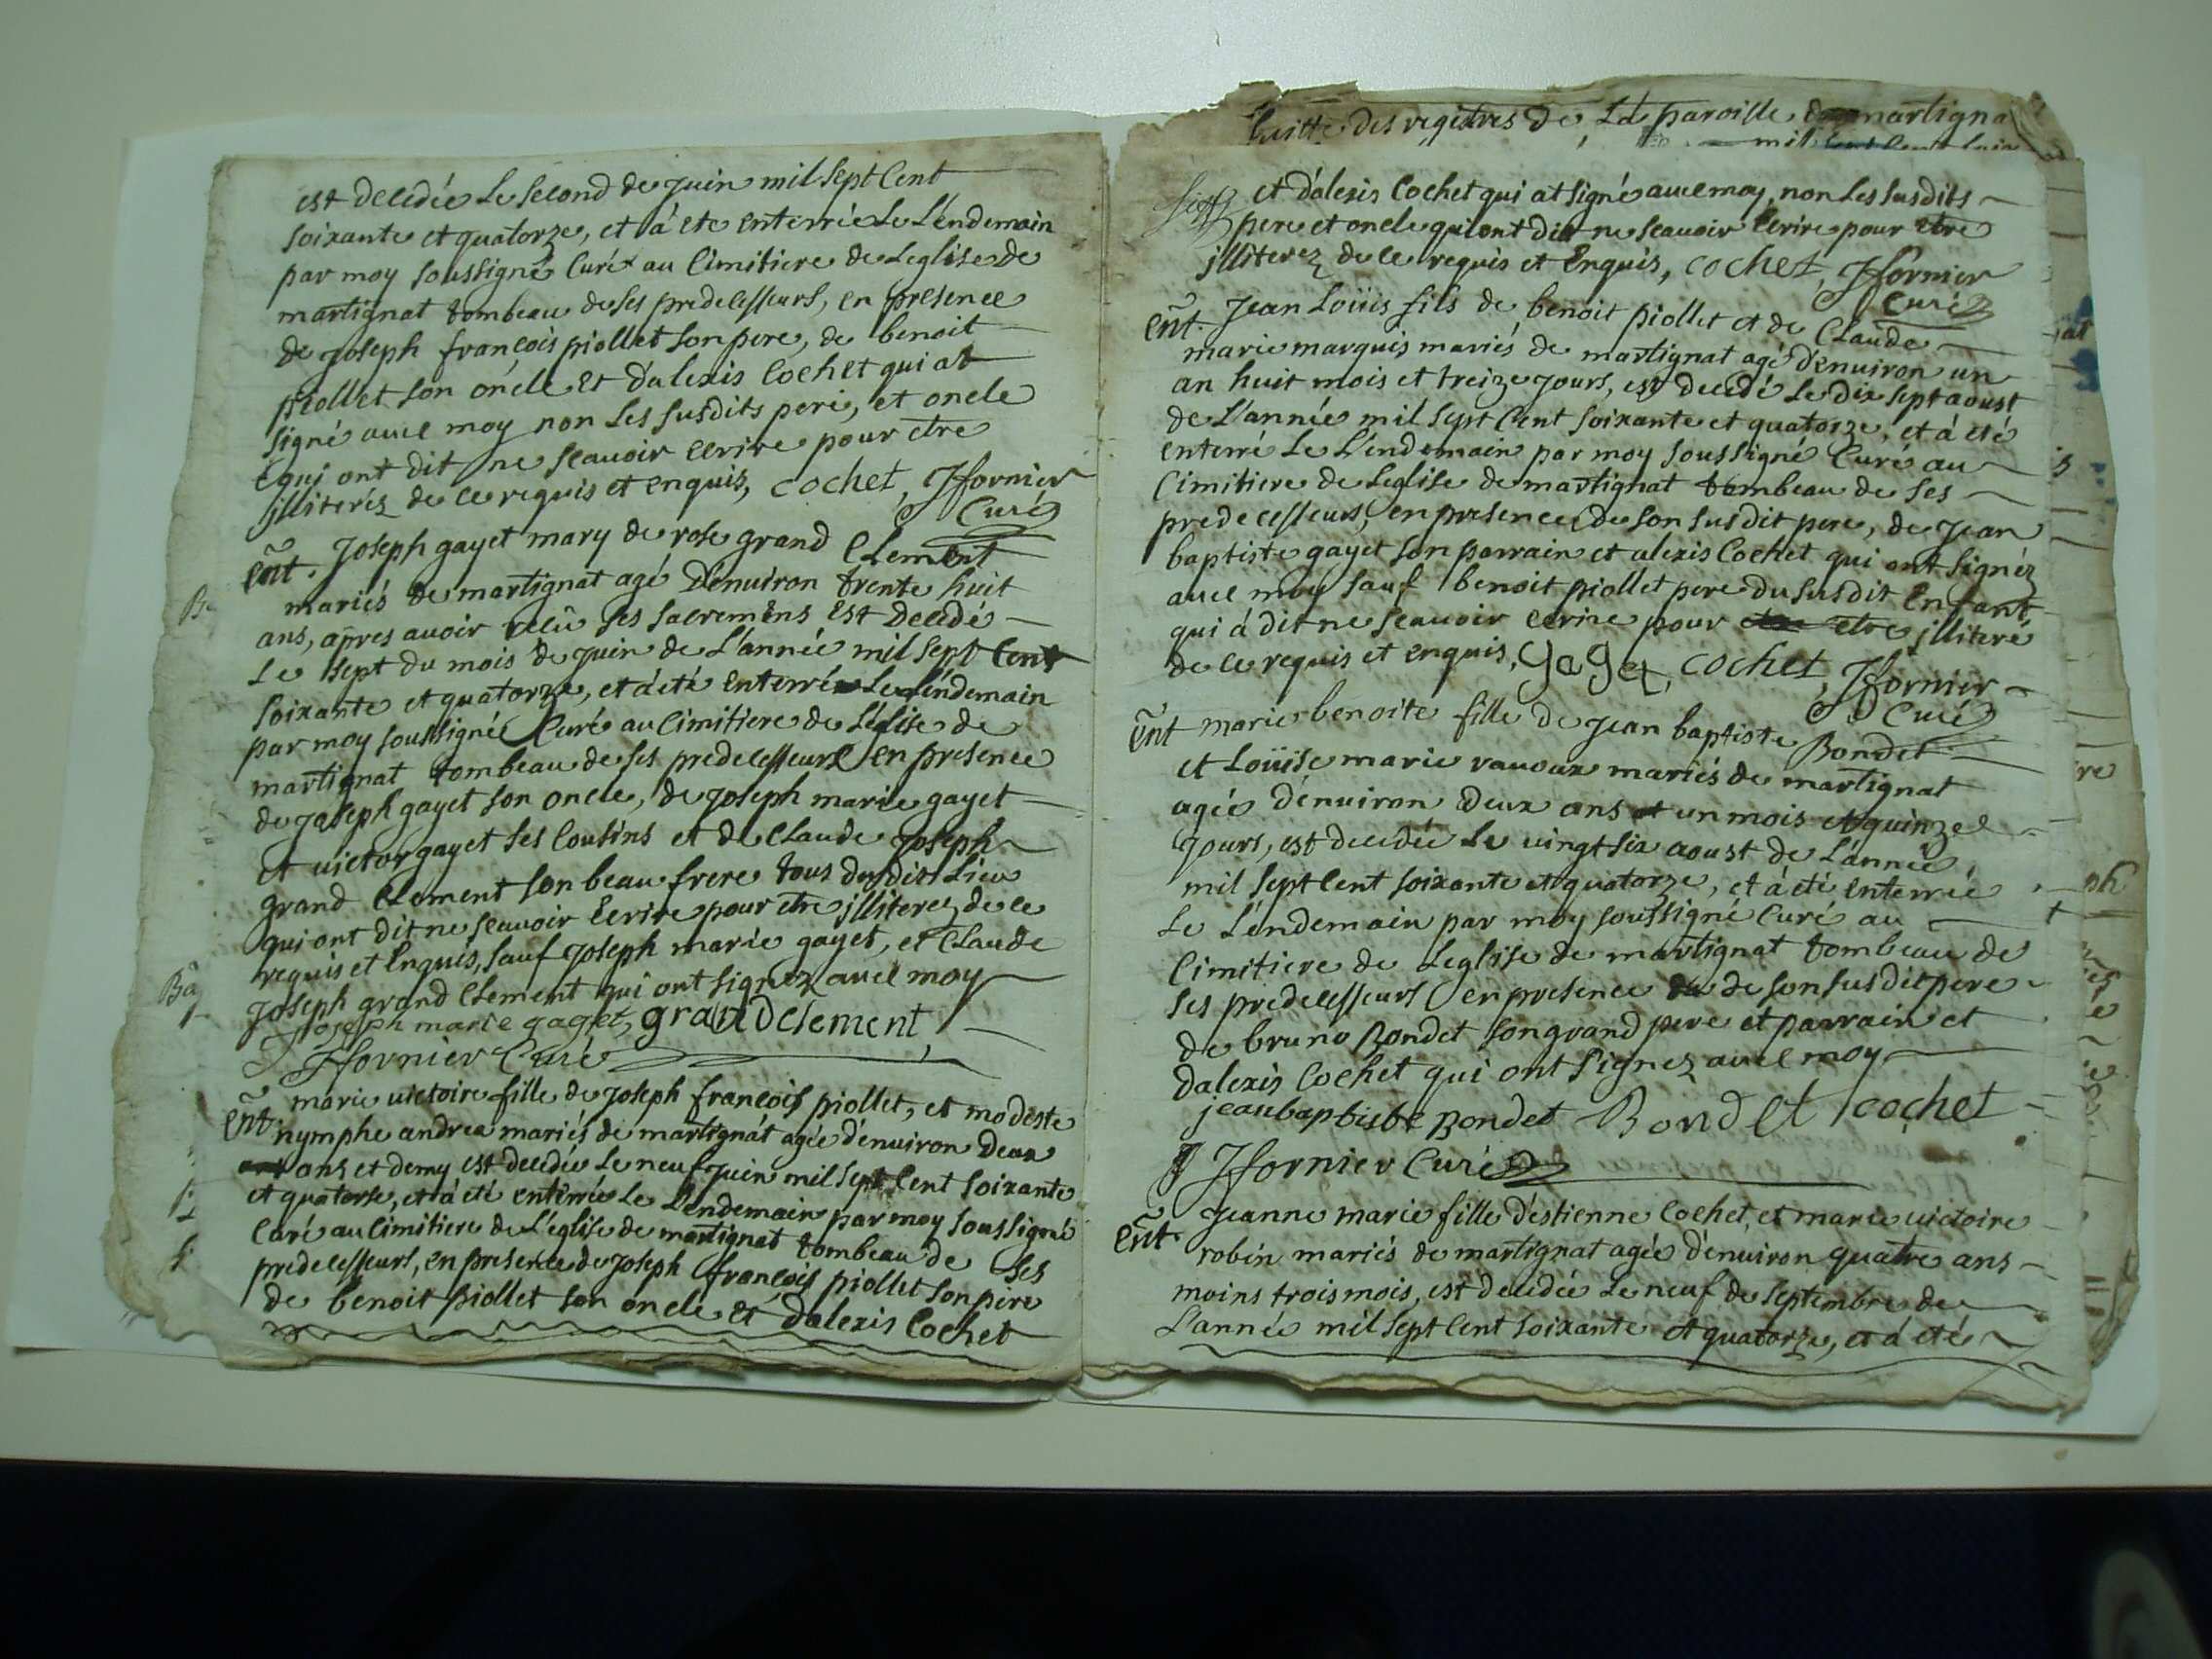 est decedée le second de juin mil sept cent
soixante et quatorze, et à eté enterrée le l'endemain
par moy soussigné curé au cimitiere de l'eglise de
martignat tombeau de ses predecesseurs, en presence
de joseph françois piollet son pere, de benoit
piollet son oncle et d'alexis cochet qui at
signé avec moy non les susdits pere, et oncle
qui ont dit ne scavoir ecrire pour etre
jlliterés de ce requis et enquis, cochet, Jffornier
Curé
ent. Joseph gayet mary de rose grand Clement
mariés de martignat agé d'environ trente huit
ans, apres avoir recû ses sacremens est decedé
le sept du mois de juin de l'année mil sept cent
soixante et quatorze, et à eté enterré le l'éndemain
par moy soussigné Curé au cimitiere de l'église de
martignat tombeau de ses predecesseurs en presence
de joseph gayet son oncle, de joseph marie gayet
et victor gayet ses cousins et de Claude joseph
grand Clement son beau frere tous dudit lieu
qui ont dit ne scavoir Ecrire pour etre jlliterez de ce
requis et enquis, sauf joseph marie gayet, et Claude
joseph grand Clement qui ont signez avec moy
joseph marie gaget, grandclement,
Jffornier Curé
ent. marie victoire fille de joseph françois piollet, et modeste
nymphe andrea mariés de martignat agée d'environ deux
ans et demy est decedée le neuf juin mil sept cent soixante
et quatorse, et à eté enterrée le l'endemain par moy soussigné
Curé au cimitiere de l'église de martignat tombeau de ses
predecesseurs, en presence de joseph françois piollet son père
de benoit piollet son oncle et d'alexis Cochet
suitte des registres de la paroisse de martigna
et d'alexis Cochet qui at signé avec moy, non les susdits
pere et oncle qui ont dit ne scavoir Ecrire pour etre
jlliterez de ce requis et enquis, cochet, Jffornier
Curé
ent. Jean Loüis fils de benoit piollet et de Claude
marie marquis mariés de martignat agé d'environ un
an huit mois et treize jours, est decedé le dix sept aoust
de l'année mil sept cent soixante et quatorze, et à eté
enterré le l'endemain par moy soussigné Curé au
cimitiere de l'eglise de martignat tombeau de ses
predecesseurs, en presence de son susdit pere, de jean
baptiste gayet son parrain et alexis Cochet qui ont signéz
avec moy sauf benoit piollet pere du susdit Enfant,
qui à dit ne scavoir ecrire pour etre jlliteré
de ce requis et enquis, gaget, cochet, Jffornier
Curé
ent marie benoite fille de jean baptiste Bondet
et Loüise marie vavoux mariés de martignat
agée d'environ deux ans et un mois et quinze
jours, est decedée le vingt six aoust de l'année
mil sept cent soixante et quatorze, et à eté enterrée
le l'endemain par moy soussigné Curé au
cimitiere de l'eglise de martignat tombeau de
ses predecesseurs en presence de son susdit pere
de bruno Bondet son grand pere et parrain et
d'alexis Cochet qui ont signez avec moy
jeanbaptiste Bondet Bondet cochet
Jffornier Curé
ent. Jeanne marie fille d'estienne Cochet, et marie victoire
robin mariés de martignat agée d'environ quatre ans
moins trois mois, est decedée le neuf de septembre de
l'année mil sept cent soixante et quatorze, et à eté